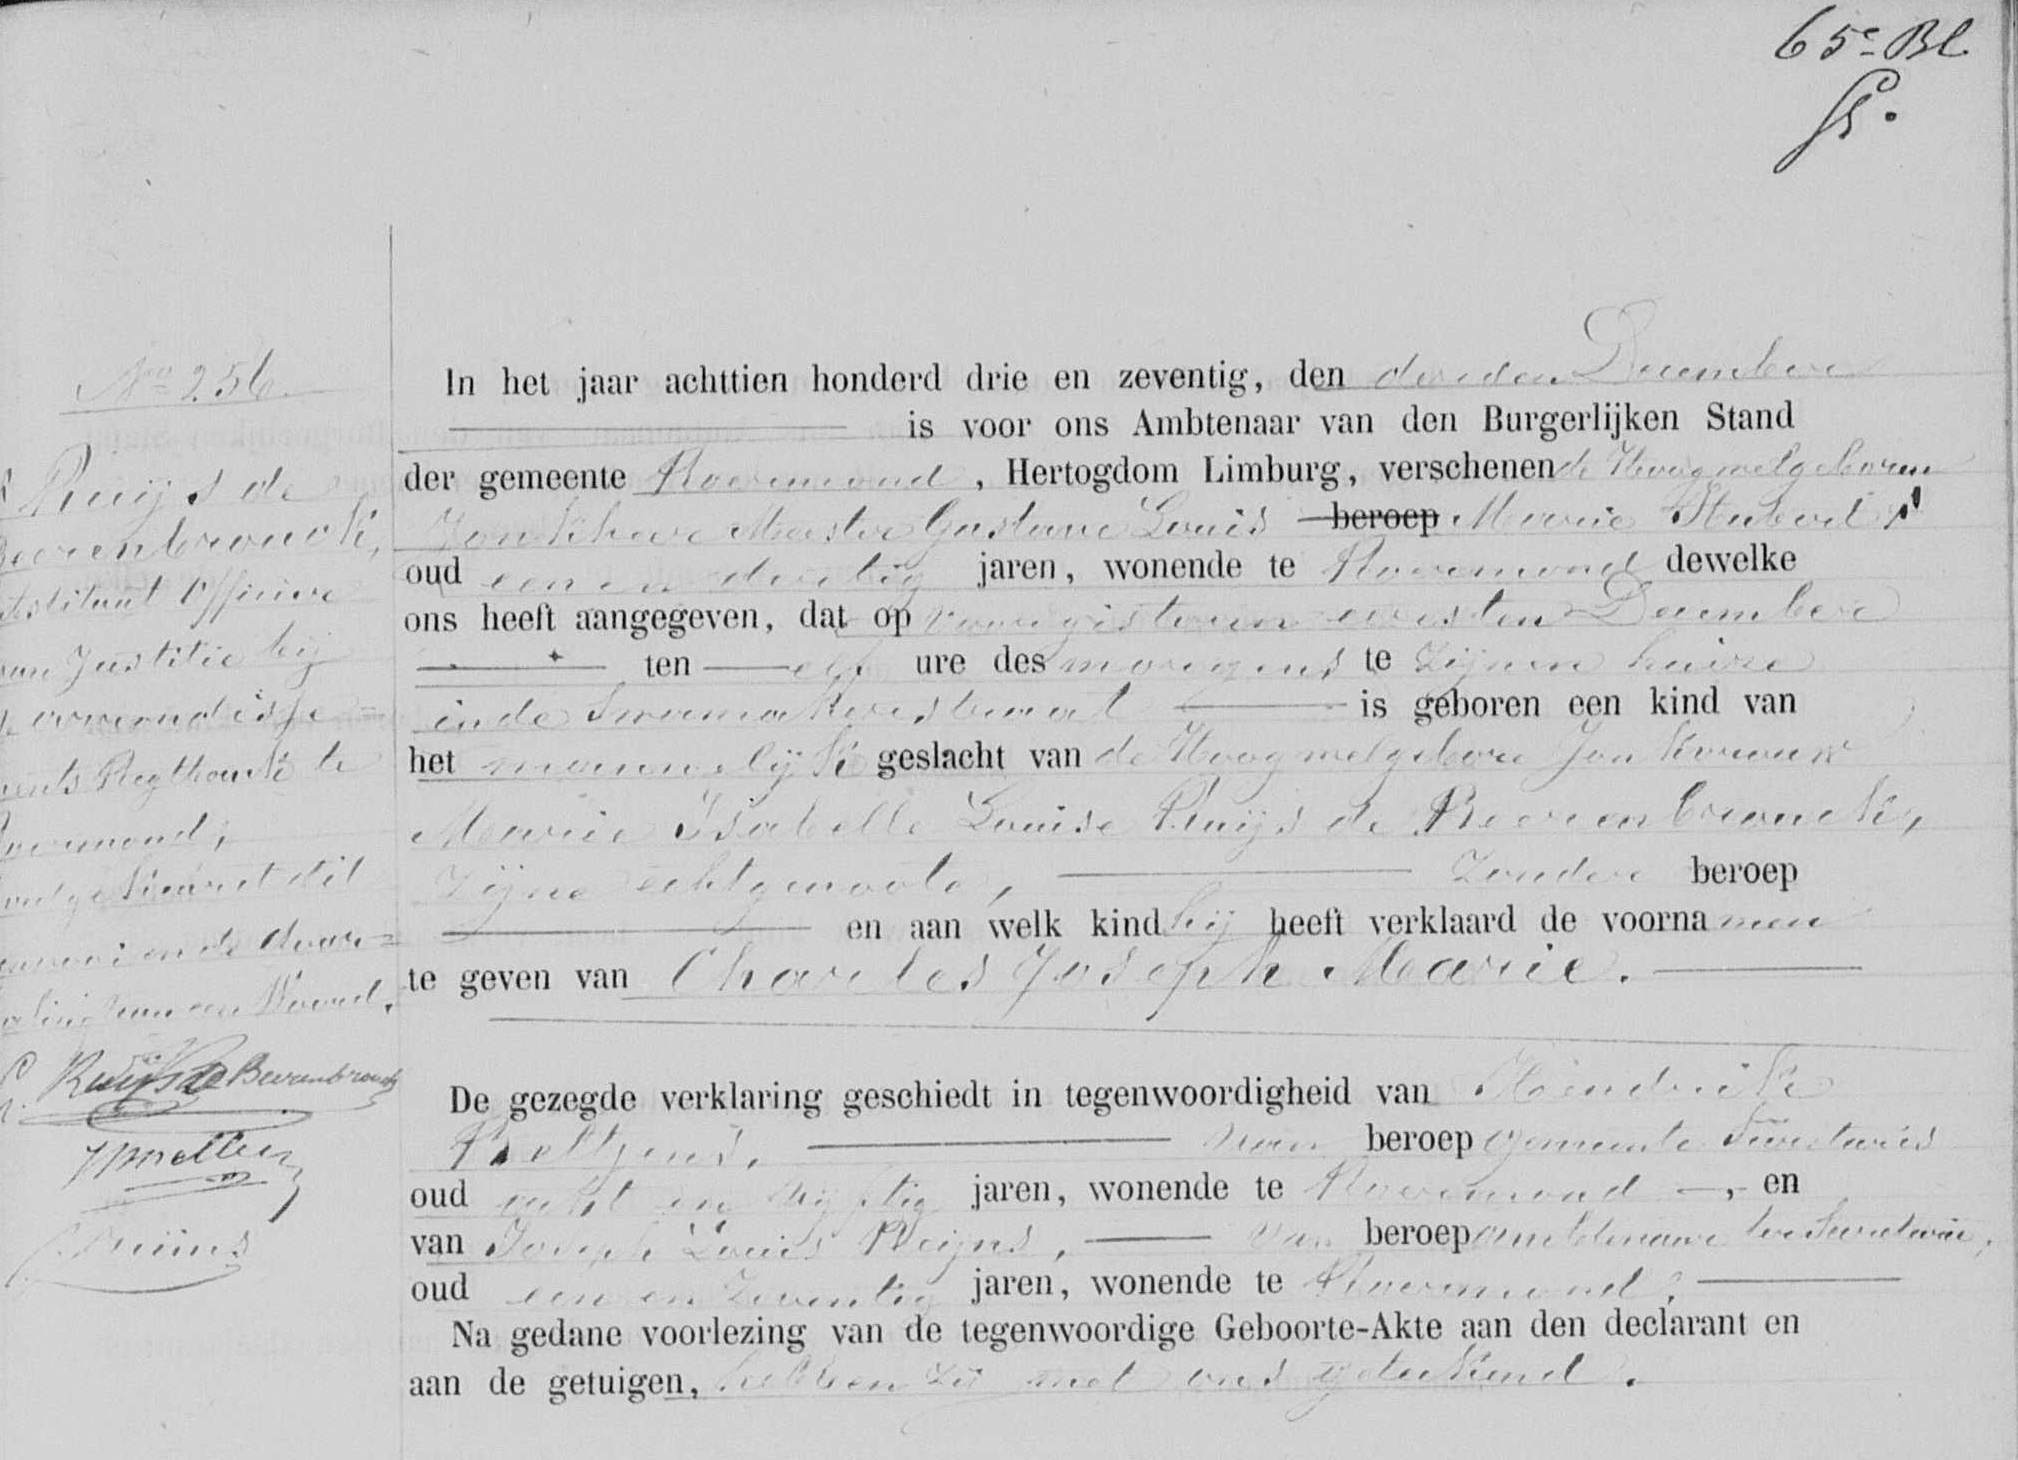 65e Bl
No 256.
Ruijs de
Beerenbrouck,
stituut Officier
van Justitie bij
arrondisse=
ments Regtbank te
Roermond,
goedgekeurd dit
renvooi en de door=
haling van een Woord.
Ruijs de Beerenbrouck
In het jaar achttien honderd drie en zeventig, den derden December
is voor ons Ambtenaar van den Burgerlijken Stand
der gemeente Roermond, Hertogdom Limburg, verschenen de Hoogwelgeboren
Jonkheer Meester Gustave Louis beroep Marie Hubert
oud een en dertig jaren, wonende te Roermond dewelke
ons heeft aangegeven, dat op voorgisteren eersten December
ten elf ure des morgens te Zijnen huize
in de Swamakerstraat is geboren een kind van
het mannelijk geslacht van de Hoogwelgebore Jonkvrouw
Marie Isabelle Louise Ruijs de Beerenbrouck,
Zijne echtgenoote, Zonder beroep
en aan welk kind hij heeft verklaard de voornamen
te geven van Charles Joseph Marie.
De gezegde verklaring geschiedt in tegenwoordigheid van Hendrik
Beltjens, van beroep gemeente Secretaris
oud acht en vijftig jaren, wonende te Roermond, en
van Joseph Louis Reijns, van beroep ambtenaar ter Secretarie,
oud een en Zeventig jaren, wonende te Roermond,
Na gedane voorlezing van de tegenwoordige Geboorte-Akte aan den declarant en
aan de getuigen, hebben zij met ons geteekend.